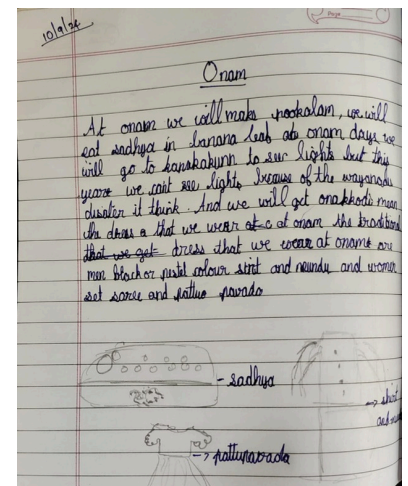 10/9/24
Page
Onam
At onam we will make pookalam, we will
eat sadhya in banana leaf at onam days we
will go to kanakakunn to see lights but this
year we cant see lights because of the wayanadu
disater it think. And we will get onakkodi mean
the dress a that we wear at onam the traditional
that we get dress that we wear at onam are
men black or pastel colour shirt and mundu and women
set saree and pattu pavada
sadhya
shirt
and
pattupavada